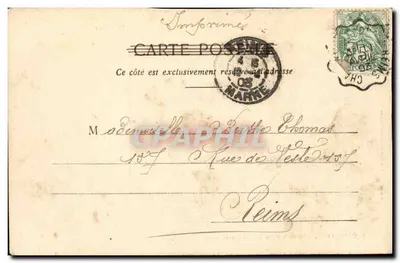 Imprimés
CARTE POSTALE
Ce côté est exclusivement réservé à l'adresse
REIMS
MARNE
03
Mademoiselle Berthe Thomas
157 Rue de Vesle 157
Reims